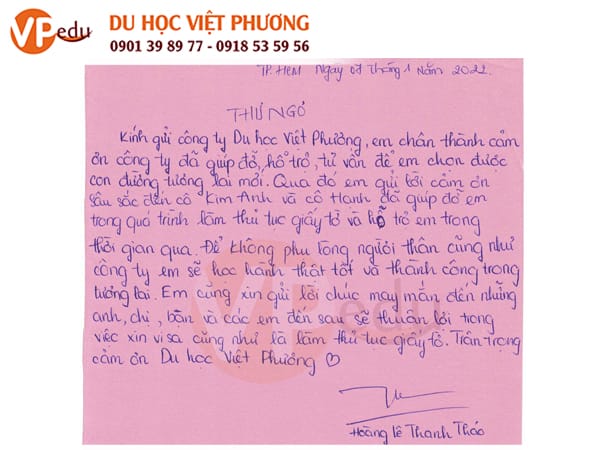 VPedu
DU HỌC VIỆT PHƯƠNG
0901 39 89 77 - 0918 53 59 56
TP. HCM Ngày 07 Tháng 1 Năm 2022
THƯ NGỎ
Kính gửi công ty Du học Việt Phương, em chân thành cảm
ơn công ty đã giúp đỡ, hỗ trợ, tư vấn để em chọn được
con đường tương lai mới. Qua đó em gửi lời cảm ơn
sâu sắc đến cô Kim Anh và cô Hạnh đã giúp đỡ em
trong quá trình làm thủ tục giấy tờ và hỗ trợ em trong
thời gian qua. Để không phụ lòng người thân cũng như
công ty em sẽ học hành thật tốt và thành công trong
tương lai. Em cũng xin gửi lời chúc may mắn đến những
anh, chị, bạn và các em đến sau sẽ thuận lợi trong
việc xin visa cũng như là làm thủ tục giấy tờ. Trân trọng
cảm ơn Du học Việt Phương ♡
Hoàng Lê Thanh Thảo
VPedu